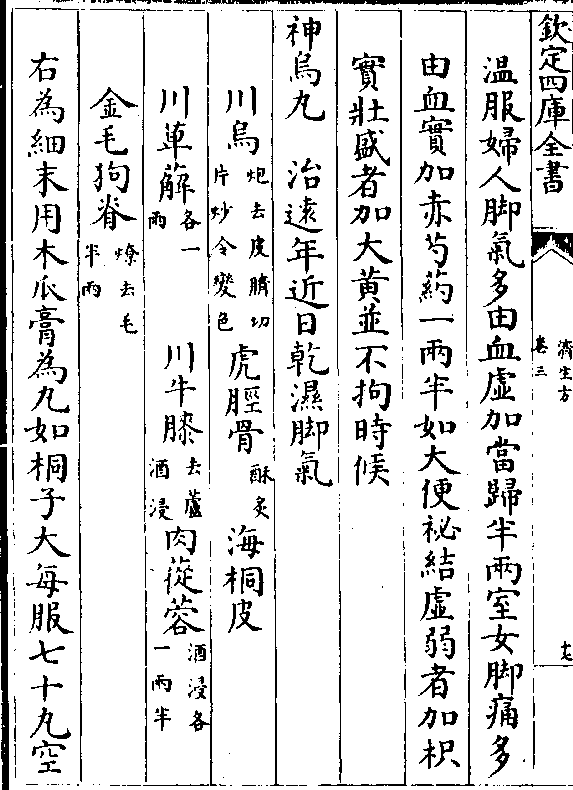 欽定四庫全書
濟生方
卷三
十七
温服婦人脚氣多由血虚加當歸半兩室女脚痛多
由血實加赤芍藥一兩半如大便祕結虚弱者加枳
實壯盛者加大黄並不拘時候
神烏丸 治遠年近日乾濕脚氣
川烏炮去皮臍切片炒令變色 虎脛骨酥炙 海桐皮
川萆薢各一兩 川牛膝去蘆酒浸 肉蓯蓉酒浸各一兩半
金毛狗脊燎去毛半兩
右為細末用木瓜膏為丸如桐子大每服七十丸空